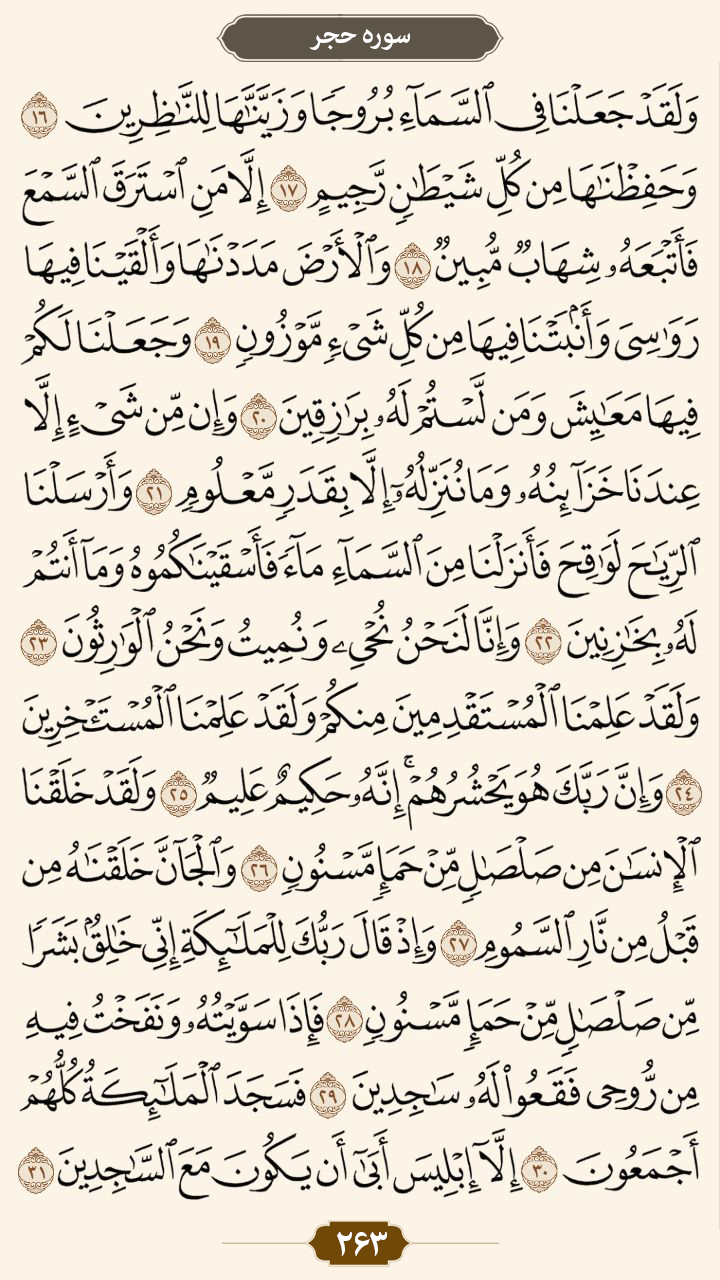 سوره حجر
وَلَقَدْ جَعَلْنَا فِى ٱلسَّمَآءِ بُرُوجًا وَزَيَّنَّٰهَا لِلنَّٰظِرِينَ ١٦
وَحَفِظْنَٰهَا مِن كُلِّ شَيْطَٰنٍ رَّجِيمٍ ١٧ إِلَّا مَنِ ٱسْتَرَقَ ٱلسَّمْعَ
فَأَتْبَعَهُۥ شِهَابٌ مُّبِينٌ ١٨ وَٱلْأَرْضَ مَدَدْنَٰهَا وَأَلْقَيْنَا فِيهَا
رَوَٰسِىَ وَأَنۢبَتْنَا فِيهَا مِن كُلِّ شَىْءٍ مَّوْزُونٍ ١٩ وَجَعَلْنَا لَكُمْ
فِيهَا مَعَٰيِشَ وَمَن لَّسْتُمْ لَهُۥ بِرَٰزِقِينَ ٢٠ وَإِن مِّن شَىْءٍ إِلَّا
عِندَنَا خَزَآئِنُهُۥ وَمَا نُنَزِّلُهُۥٓ إِلَّا بِقَدَرٍ مَّعْلُومٍ ٢١ وَأَرْسَلْنَا
ٱلرِّيَٰحَ لَوَٰقِحَ فَأَنزَلْنَا مِنَ ٱلسَّمَآءِ مَآءً فَأَسْقَيْنَٰكُمُوهُ وَمَآ أَنتُمْ
لَهُۥ بِخَٰزِنِينَ ٢٢ وَإِنَّا لَنَحْنُ نُحْىِۦ وَنُمِيتُ وَنَحْنُ ٱلْوَٰرِثُونَ ٢٣
وَلَقَدْ عَلِمْنَا ٱلْمُسْتَقْدِمِينَ مِنكُمْ وَلَقَدْ عَلِمْنَا ٱلْمُسْتَـْٔخِرِينَ
٢٤ وَإِنَّ رَبَّكَ هُوَ يَحْشُرُهُمْ ۚ إِنَّهُۥ حَكِيمٌ عَلِيمٌ ٢٥ وَلَقَدْ خَلَقْنَا
ٱلْإِنسَٰنَ مِن صَلْصَٰلٍ مِّنْ حَمَإٍ مَّسْنُونٍ ٢٦ وَٱلْجَآنَّ خَلَقْنَٰهُ مِن
قَبْلُ مِن نَّارِ ٱلسَّمُومِ ٢٧ وَإِذْ قَالَ رَبُّكَ لِلْمَلَٰٓئِكَةِ إِنِّى خَٰلِقٌۢ بَشَرًا
مِّن صَلْصَٰلٍ مِّنْ حَمَإٍ مَّسْنُونٍ ٢٨ فَإِذَا سَوَّيْتُهُۥ وَنَفَخْتُ فِيهِ
مِن رُّوحِى فَقَعُوا۟ لَهُۥ سَٰجِدِينَ ٢٩ فَسَجَدَ ٱلْمَلَٰٓئِكَةُ كُلُّهُمْ
أَجْمَعُونَ ٣٠ إِلَّآ إِبْلِيسَ أَبَىٰٓ أَن يَكُونَ مَعَ ٱلسَّٰجِدِينَ ٣١
۲۶۳